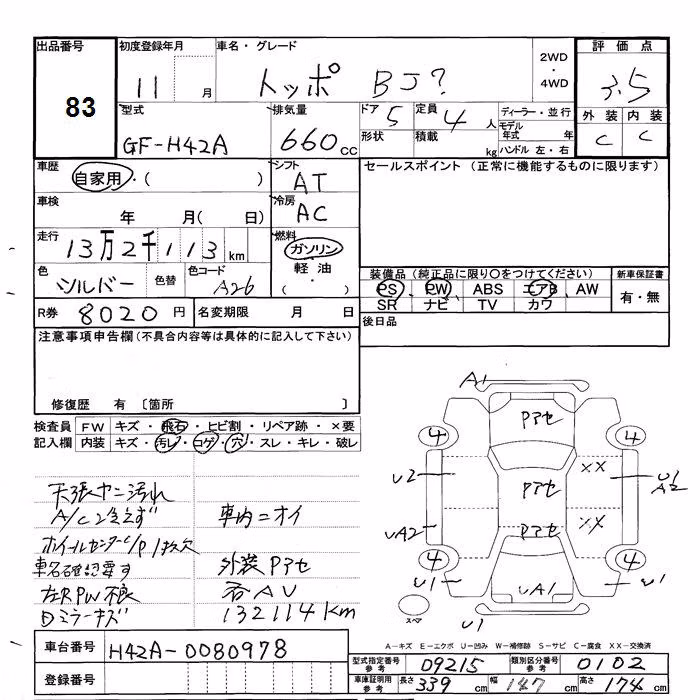 出品番号 初度登録年月 車名・グレード 2WD・4WD 評価点
83 11月 トッポ BJ? 3.5
型式 排気量 ドア 5 定員 4人 ディーラー・並行 外装 内装
GF-H42A 660cc 形状 積載 kg モデル年式 年 C C
ハンドル 左・右
車歴 シフト セールスポイント (正常に機能するものに限ります)
自家用・( ) AT
車検 冷房
年 月( 日) AC
走行 燃料
13万2千113km ガソリン
色 色替 色コード 軽油
シルバー A26 ( )
装備品 (純正品に限り〇をつけてください) 新車保証書
PS PW ABS エアB AW 有・無
SR ナビ TV カワ
R券 8020円 名変期限 月 日 後日品
注意事項申告欄(不具合内容等は具体的に記入して下さい)
修復歴 有 〔箇所 〕
検査員 FW キズ・飛石・ヒビ割・リペア跡・×要
記入欄 内装 キズ・汚レ・コゲ・穴・スレ・キレ・破レ
天張ヤニ汚れ
A/C冷えず 車内ニオイ
ホイルセンターC/P 1ケ欠
車名確認要す 外装Pアセ
左RPW不良 各AU
Dミラーキズ 132114km
A1
Pアセ
4 4
U2 XX U1
Pアセ A2
UA2 Pアセ XX
4 4
U1 UA1 U1
スペア U1
A-キズ E-エクボ U-凹み W-補修跡 S-サビ C-腐食 XX-交換済
車台番号 H42A-0080978
型式指定番号参考 09215 類別区分番号参考 0102
登録番号
車庫証明用参考 長さ 339 幅 147 高さ 174